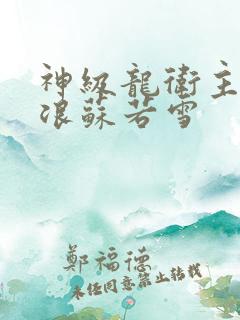 神級龍衛主
浪蘇若雪
鄭福德
未經同意禁止轉載